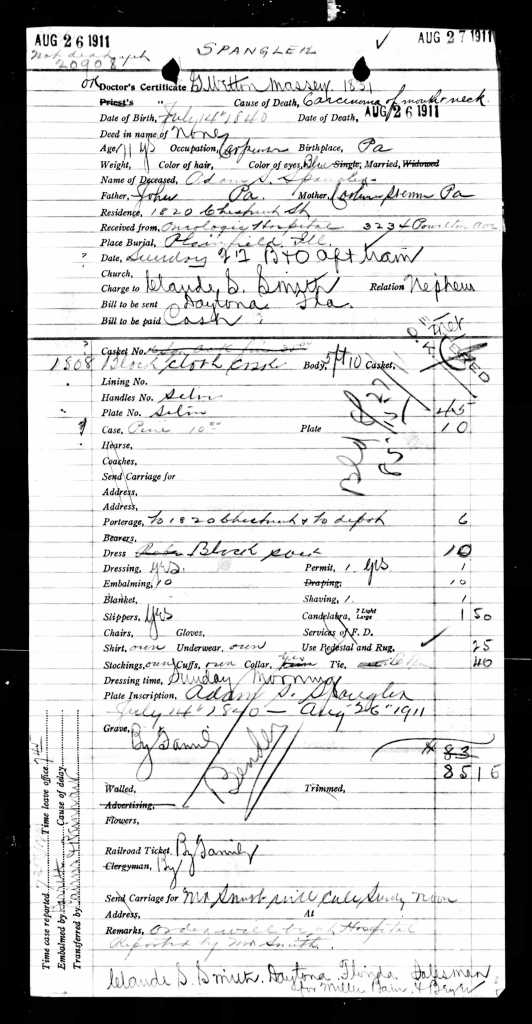 AUG 26 1911
AUG 27 1911
SPANGLER
20908
OK Doctor's Certificate G. Witton Massey. 1831
Priest's " Cause of Death, Carcinoma of mouth & neck.
Date of Birth, July 14" 1840 Date of Death, AUG 26 1911
Deed in name of None
Age, 71 yrs Occupation, Birthplace, Pa
Weight, Color of hair, Color of eyes, Blue Single, Married, Widowed
Name of Deceased, Adam S. Spangler
Father, John Pa. Mother, Pa
Residence, 1820 Chestnut St
Received from, Oncologic Hospital
Place Burial, Plainfield, Ill.
Date, Sunday 27 B+O aft train
Church,
Charge to Claude S. Smith Relation Nephew
Bill to be sent Daytona Fla.
Bill to be paid Cash
Casket No.
1808 Black Cloth Body, 5ft 10 Casket,
Lining No.
Handles No. Silver
Plate No. Silver 45
Case, Pine 10 Plate 10
Hearse,
Coaches,
Send Carriage for
Address,
Address,
Porterage, to 1820 Chestnut & to depot 6
Bearers,
Dress Black 10
Dressing, yes. Permit, 1. yes 1
Embalming, 10 Draping, 10
Blanket, Shaving, 1. 1
Slippers, yes Candelabra, 7 Light Large 1 50
Chairs, Gloves, Services of F. D.
Shirt, own Underwear, own Use Pedestal and Rug, 25
Stockings, own Cuffs, own Collar, Tie, 40
Dressing time, Sunday Morning
Plate Inscription, Adam S. Spangler
July 14" 1840 — Aug "26" 1911
Grave, By Family
Bender
83
85 15
Walled, Trimmed,
Advertising,
Flowers,
Railroad Ticket, By Family
Clergyman, By
Send Carriage for Mr Smith will call Sunday Noon
Address, At
Remarks, Order will be at Hospital
Reported by Mr Smith.
Claude S. Smith. Daytona, Florida Salesman
for Miller Bain &
Time case reported Time leave office, 7 45
Embalmed by Cause of delay
Transferred by